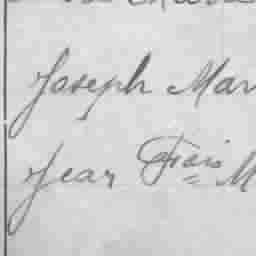 Joseph Mar
Jean Frais M